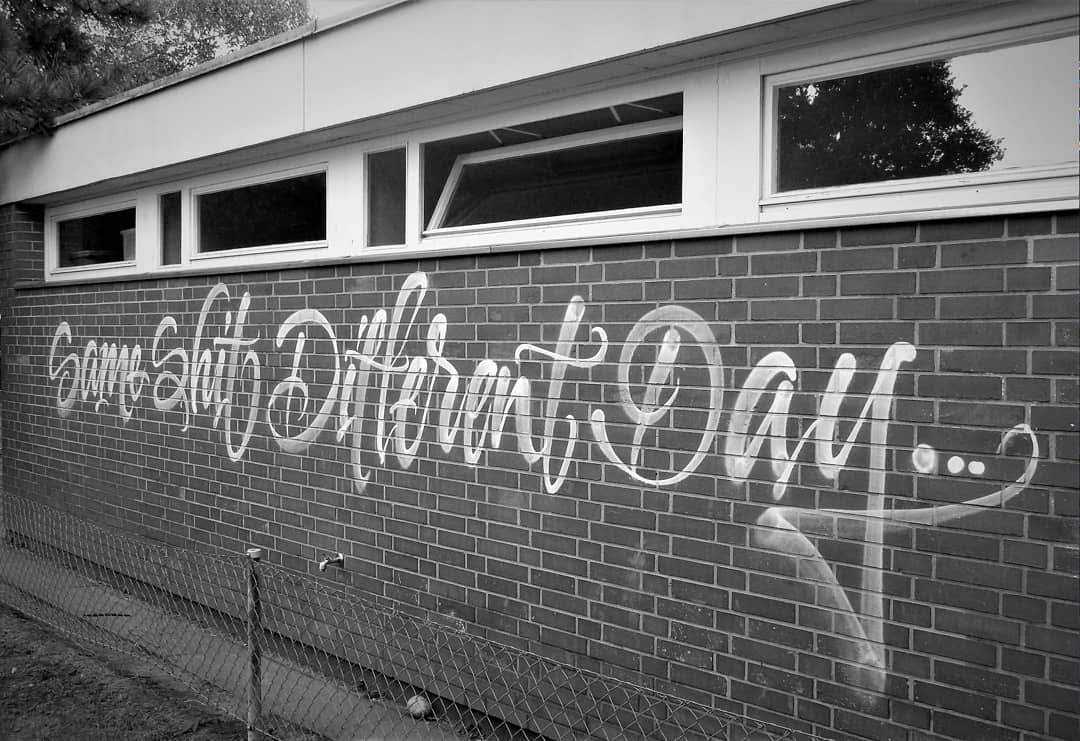 Same Shit Different Day...